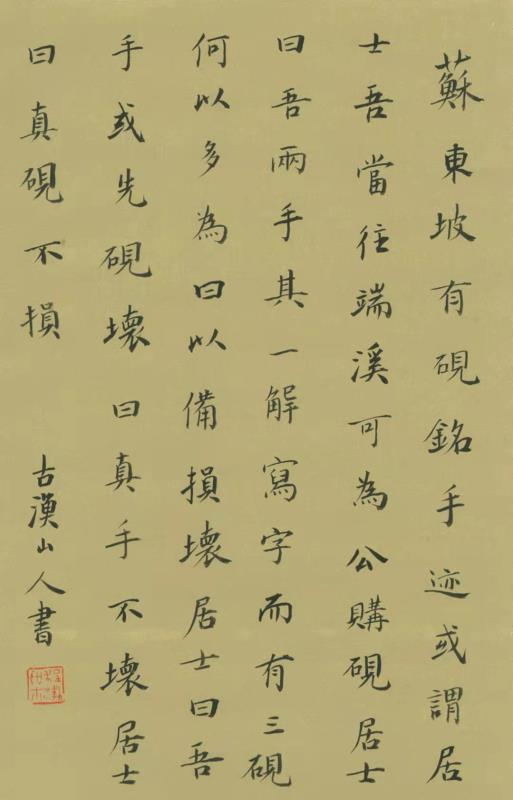 蘇東坡有硯銘手迹或謂居
士吾當往端溪可為公購硯居士
曰吾兩手其一解寫字而有三硯
何以多為曰以備損壞居士曰吾
手或先硯壞曰真手不壞居士
曰真硯不損
古漢山人書